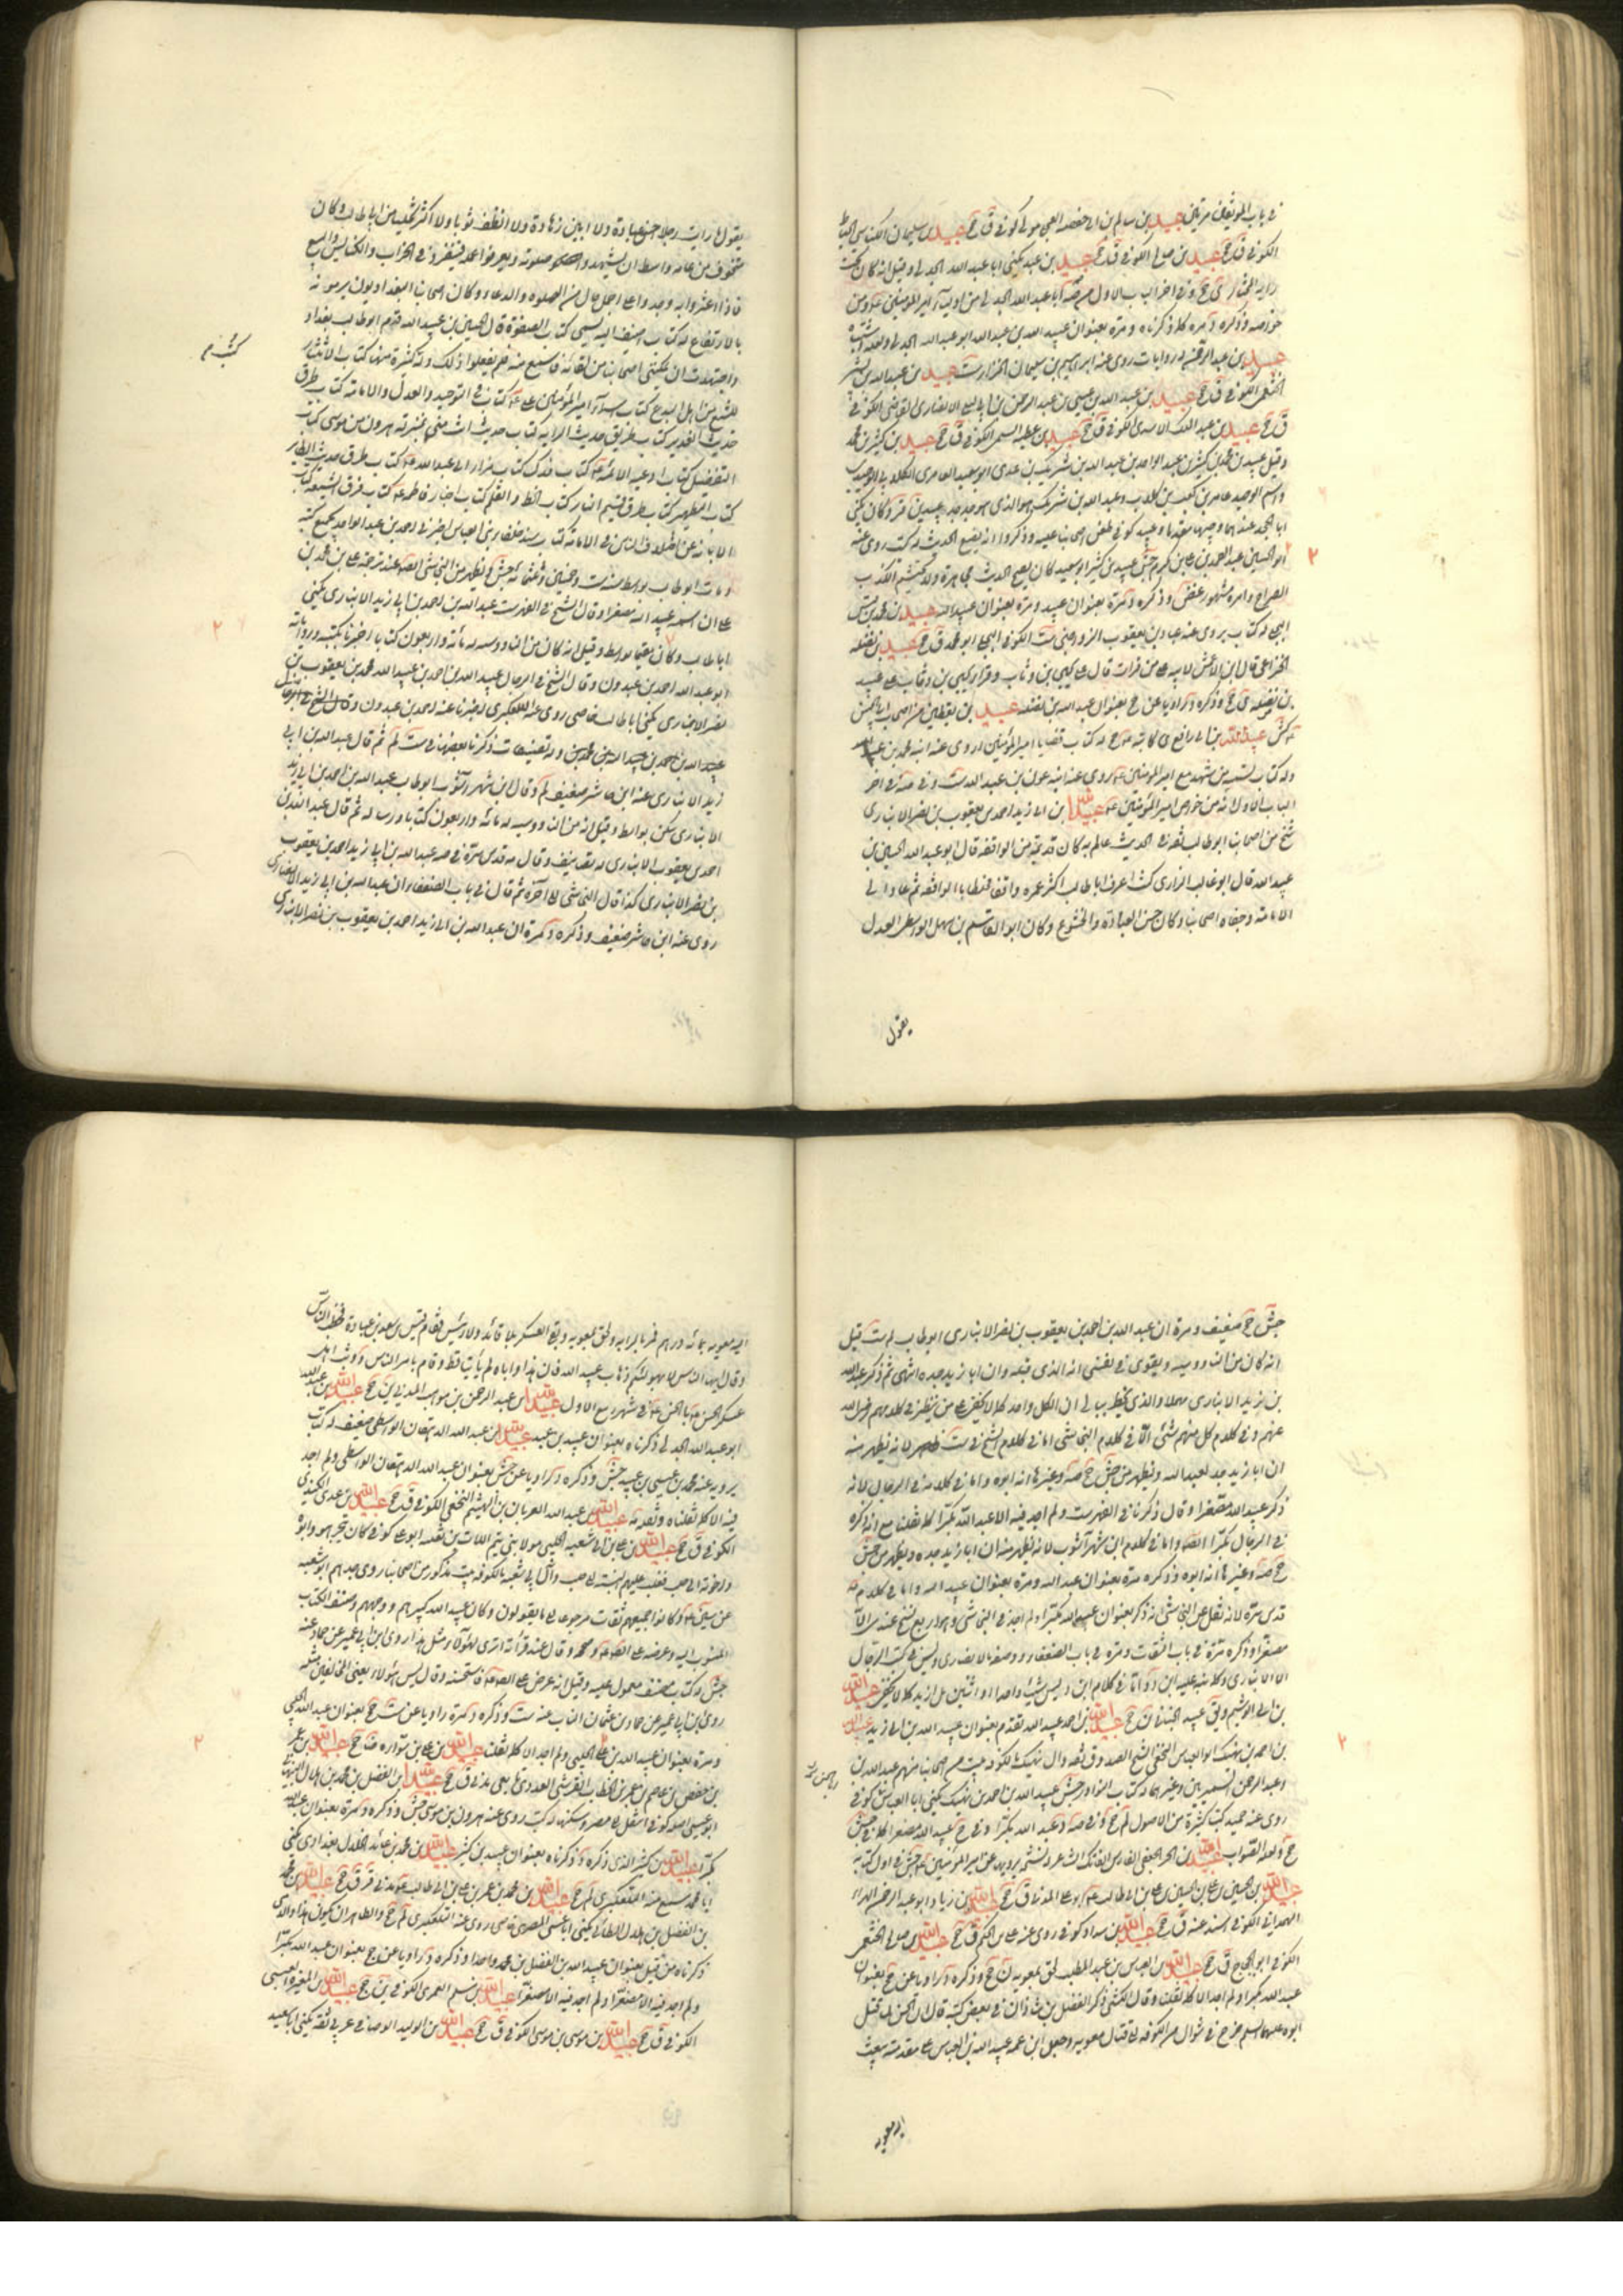 في باب الموثقين مرتين عبيد بن سالم بن ابي حفصه العجلي مولى كوفي ق جخ عبيد بن سليمان
الكوفي ق جخ عبيد بن صالح الكوفي ق جخ عبيد بن عبد يكنى ابا عبد الله الجدلي وقيل انه كان تحت
راية المختار ي جخ وفي اخر الباب الاول من صه ابا عبد الله الجدلي من اولياء امير المؤمنين
خواصه وذكره د مرة كما ذكرناه ومرة بعنوان عبيد الله بن عبد الله ابو عبد الله الجدلي
عبيد بن عبد الرحمن له روايات روى عنه ابراهيم بن سليمان الخزاز ست عبيد بن عبد الله بن بشر
الخثعمي الكوفي ق جخ عبيد بن عبد الله بن عيسى بن عبد الرحمن بن ابي ليلى الانصاري القاضي الكوفي
ق جخ عبيد بن عبد الملك الاسدي الكوفي ق جخ عبيد بن عطية السلمي الكوفي ق جخ عبيد بن كثير بن محمد
وقيل عبيد بن محمد بن كثير بن عبد الواحد بن عبد الله بن شريك بن عدي ابو سعيد العامري الكلابي الوحيدي
واسم الوحيد عامر بن كعب بن كلاب وعبد الله بن شريك هو الذي هو جد جد عبيد بن كثير وكان يكنى
ابا المحجل عنهما وجيها مقدما وعبيد كوفي طعن اصحابنا عليه وذكروا انه يضع الحديث له كتب روى عنه
ابو الحسين عبد الصمد بن علي بن مكرم جش عبيد بن كثير ابو سعيد كان يضع الحديث مجاهرة ولا يحتشم الكذب
الصراح وامره مشهور غض وذكره د مرة بعنوان عبيد ومرة بعنوان عبيد الله عبيد بن محمد بن قيس
البجلي له كتاب يروي عنه عباد بن يعقوب الرواجني ست الكوفي البجلي ابو محمد ق جخ عبيد بن نضلة
الخزاعي قال ابن الاعمش لابيه على من قرات قال على يحيى بن وثاب وقرا يحيى بن وثاب على عبيد
بن نضلة ي جخ وذكره د راويا عن جخ بعنوان عبد الله بن نضله عبيد بن يقطين من اصحاب ابي الحسن
كش عبيد الله بن ابي رافع ي كاتبه جخ له كتاب قضايا امير المؤمنين روى عنه ابنه محمد بن عبيد الله
وله كتاب تسمية من شهد مع امير المؤمنين روى عنه ابنه عون بن عبيد الله ست وفي صه في اخر
الباب الاول انه من خواص امير المؤمنين عبيد الله بن ابي زيد احمد بن يعقوب بن نصر الانباري
شيخ من اصحابنا ابو طالب ثقة في الحديث عالم به كان قديما من الواقفة قال ابو عبد الله الحسين بن
عبيد الله قال ابو غالب الزراري كنت اعرف ابا طالب اكثر عمره واقفا مختلطا بالواقفة ثم عاد الى
الامامة وجفاه اصحابنا وكان حسن العبادة والخشوع وكان ابو القاسم بن سهل الواسطي العدل
يقول
يقول ما رايت رجلا احسن عبادة ولا ابين زهادة ولا انظف ثوبا ولا اكثر تحليا من ابي طالب وكان
يتخوف من عامة واسط ان يشهدوا صلوته ويعرفوا عمله فينفرد في الخراب والكنايس والبيع
فاذا عثروا به وجدوا على اجمل حال من الصلوة والدعاء وكان اصحابنا البغداديون يرمونه
بالارتفاع له كتاب اضيف اليه يسمى كتاب الصفوة قال الحسين بن عبيد الله قدم ابو طالب بغداد
واجتهدت ان يمكنني اصحابنا من لقائه فاسمع منه فلم يفعلوا ذلك وله كتب كثيرة منها كتاب الانتصار
للشيع من اهل البدع كتاب اسماء امير المؤمنين كتاب في التوحيد والعدل والامامة كتاب طرق
حديث الغدير كتاب طريق حديث الراية كتاب حديث انت مني بمنزلة هرون من موسى كتاب
التفضيل كتاب ادعية الائمة كتاب فدك كتاب مزار ابي عبد الله كتاب طرق حديث الطاير
كتاب التطهير كتاب طرق قسيم النار كتاب الخط والقلم كتاب اخبار فاطمة كتاب فرق الشيعة كتاب
الابانة عن اختلاف الناس في الامامة كتاب مسند خلفاء بني العباس اخبرني احمد بن عبد الواحد بجميع كتبه
ومات ابو طالب بواسط سنة ست وخمسين وثلثمائة جش ويظهر من النجاشي ايضا عند ترجمة علي بن محمد بن
على ان اسمه عبيد الله مصغرا وقال الشيخ في الفهرست عبد الله بن احمد بن ابي زيد الانباري يكنى
ابا طالب وكان مقيما بواسط وقيل انه كان من الناووسية له مائة واربعون كتابا اخبرنا بكتبه ورواياته
ابو عبد الله احمد بن عبدون وقال الشيخ في الرجال عبيد الله بن احمد بن عبيد الله بن محمد بن يعقوب بن
نصر الانباري يكنى ابا طالب خاصي روى عنه التلعكبري اخبرنا عنه احمد بن عبدون وقال الشيخ في الرجال
عبد الله بن احمد بن عبيد الله بن محمد بن وله تصنيفات ذكرنا بعضها في ست لم ثم قال عبد الله بن ابي
زيد الانباري عنه ابن حاشر ضعيف لم وقال ابن شهر آشوب ابو طالب عبد الله بن احمد بن ابي زيد
الانباري سكن بواسط وقيل انه من الناووسية له مائة واربعون كتابا ورسالة ثم قال عبد الله بن
احمد بن يعقوب الانباري له تصانيف وقال مه قدس سره في صه عبد الله بن ابي زيد احمد بن يعقوب
بن نصر الانباري كذا قال النجاشي الى آخره ثم قال في باب الضعفاء ان عبد الله بن ابي زيد الانصاري
روى عنه ابن حاشر ضعيف وذكره د مرة ان عبد الله بن ابي زيد احمد بن يعقوب بن نصر الانباري
جش جخ ضعيف ومرة ان عبد الله بن احمد بن يعقوب بن نصر الانباري ابو طالب لم ست قيل
انه كان من الناووسية ويقوى في نفسي انه الذي قبله وان ابا زيد جده انتهى ثم ذكر عبد الله
بن زيد الانباري مهملا والذي يخطر ببالي ان الكل واحد كما لا يخفى على من ينظر في كلامهم
عنهم وفي كلام كل منهم شئ اما في كلام النجاشي اما في كلام الشيخ في ست فلانه يظهر منه
ان ابا زيد جد لعبد الله ويظهر من جش جخ صه وغيرها انه ابوه واما في كلامه في الرجال فلانه
ذكر عبيد الله مصغرا وقال ذكرناه في الفهرست ولم اجد فيه الا عبد الله مكبرا كما نقلنا مع انه ذكره
في الرجال مكبرا ايضا واما في كلام ابن شهرآشوب فلانه يظهر منه ان ابا زيد جده ويظهر من جش
جخ صه وغيرها انه ابوه وذكره مرة بعنوان عبد الله ومرة بعنوان عبيد الله واما في كلام مه
قدس سره فلانه نقل عن النجاشي انه ذكر بعنوان عبد الله مكبرا ولم اجد في النجاشي وهو اربع نسخ عندي الا
مصغرا وذكره مرة في باب الثقات ومرة في باب الضعفاء ووصفه بالانصاري وليس في كتب الرجال
الا الانباري وكلانبه عليه ابن داود اما في كلام ابن ادريس شيئا واحدا واثنين بل ازيد كما لا يخفى عبيد الله
بن ابي الوشيم وفي عبيد الجنبي ق جخ عبيد الله بن احمد عبيد الله تقدم بعنوان عبيد الله بن ابي زيد عبيد الله
بن احمد بن نهيك ابو العباس النخعي الشيخ الصدوق ثقة وآل نهيك بالكوفة بيت من اصحابنا منهم عبد الله بن محمد
وعبد الرحمن السمريين وغيرهما له كتاب النوادر جش عبيد الله بن احمد بن نهيك يكنى ابا العباس كوفي
روى عنه حميد كتبا كثيرة من الاصول لم جخ وفي صه د عبد الله مكبرا وفي جخ عبيد الله مصغرا كما في جش
جخ ولعله الصواب عبيد الله بن الحر الجعفي الفارس الفاتك الشاعر له نسخة يرويها عن امير المؤمنين جش في اول كتابه
عبيد الله بن الحسين بن علي بن الحسين بن علي بن ابي طالب ابو علي المدني ق جخ عبيد الله بن زياد ابو عبد الرحمن الهراء
الهمداني الكوفي اسند عنه ق جخ عبيد الله بن سداد كوفي روى عنه علي بن الحكم ق جخ عبيد الله بن صالح الخثعمي
الكوفي ابو الحجاج ق جخ عبيد الله بن العباس بن عبد المطلب لحق بمعوية ن جخ وذكره د راويا عن جخ بعنوان
عبد الله مكبرا ولم اجد الا كما نقلت وقال الكشي ذكر الفضل بن شاذان في بعض كتبه قال ان الحسن لما قتل
ابوه عليهما السلم خرج في شوال من الكوفة الى قتال معوية وجعل ابن عمه عبيد الله بن العباس على مقدمته فبعث
اليه معويه
اليه معوية بمائة الف درهم فمر بالراية ولحق بمعوية وبقي العسكر بلا قائد ولا رئيس فقام قيس بن سعد بن عبادة فخطب الناس
وقال ايها الناس لا يهولنكم ذهاب عبيد الله فان هذا واباه لم يأتيا قط وقام بامر الناس ووثب اهل
عسكر الحسن بالحسن في شهر ربيع الاول عبيد الله بن عبد الرحمن بن موهب المدني ين جخ عبيد الله بن عبد الله
ابو عبد الله الجدلي ذكرناه بعنوان عبيد بن عبد عبيد الله بن عبد الله الدهقان الواسطي ضعيف له كتاب
يرويه عنه محمد بن عيسى بن عبيد جش وذكره د راويا عن جش بعنوان عبد الله الدهقان الواسطي ولم اجد
فيه الا كما نقلناه ونقله مه عبيد الله بن عبد الله العريان بن الهيثم النخعي الكوفي ق جخ عبيد الله بن عدي الكندي
الكوفي ق جخ عبيد الله بن علي بن ابي شعبة الحلبي مولى بني تيم اللات بن ثعلبة ابو علي كوفي كان يتجر هو وابوه
واخوته الى حلب فغلب عليهم النسبة الى حلب وآل ابي شعبة بالكوفة بيت مذكور من اصحابنا روى جدهم ابو شعبة
عن الحسن والحسين وكانوا جميعهم ثقات مرجوعا الى ما يقولون وكان عبيد الله كبيرهم ووجههم وصنف الكتاب
المنسوب اليه وعرضه على الصادق وصححه وقال عند قرائته اترى لهؤلاء مثل هذا روى ابن ابي عمير عن حماد عنه
جش له كتاب مصنف معمول عليه وقيل انه عرض على الصادق فاستحسنه وقال ليس لهؤلاء يعني المخالفين مثله
روى ابن ابي عمير عن حماد بن عثمان الناب عنه ست وذكره د مرة راويا عن ست جخ بعنوان عبد الله الحلبي
ومرة بعنوان عبيد الله بن علي الحلبي ولم اجد الا كما نقلت عبيد الله بن علي بن سواره ق جخ عبيد الله بن عمر
بن حفص بن عاصم بن عمر بن الخطاب القرشي العدوي تابعي مدني ق جخ عبيد الله بن الفضل بن محمد بن هلال النبهاني
ابو عيسى اصله كوفي انتقل الى مصر وسكنها له كتب روى عنه هرون بن موسى جش وذكره د مرة بعنوان عبد الله
مكبرا عبيد الله بن كثير الذي ذكره د ذكرناه بعنوان عبيد بن كثير عبيد الله بن محمد بن عائذ الخلال بغدادي يكنى
ابا محمد سمع منه التلعكبري لم جخ عبيد الله بن محمد بن عمر بن علي بن ابي طالب مدني قر ق جخ عبيد الله بن محمد
بن الفضل بن هلال الطائي يكنى ابا عيسى المصري خاصي روى عنه التلعكبري لم جخ والظاهر ان يكون هذا والذي
ذكرناه من قبل بعنوان عبيد الله بن الفضل بن محمد واحدا وذكره د راويا عن جخ بعنوان عبد الله مكبرا
ولم اجد فيه الا مصغرا ولم اجد فيه الا مصغرا عبيد الله بن مسلم العمري الكوفي ين جخ عبيد الله بن المغيرة العبسي
الكوفي ق جخ عبيد الله بن موسى بن موسى الكوفي ق جخ عبيد الله بن الوليد الوصافي عربي ثقة يكنى ابا سعيد